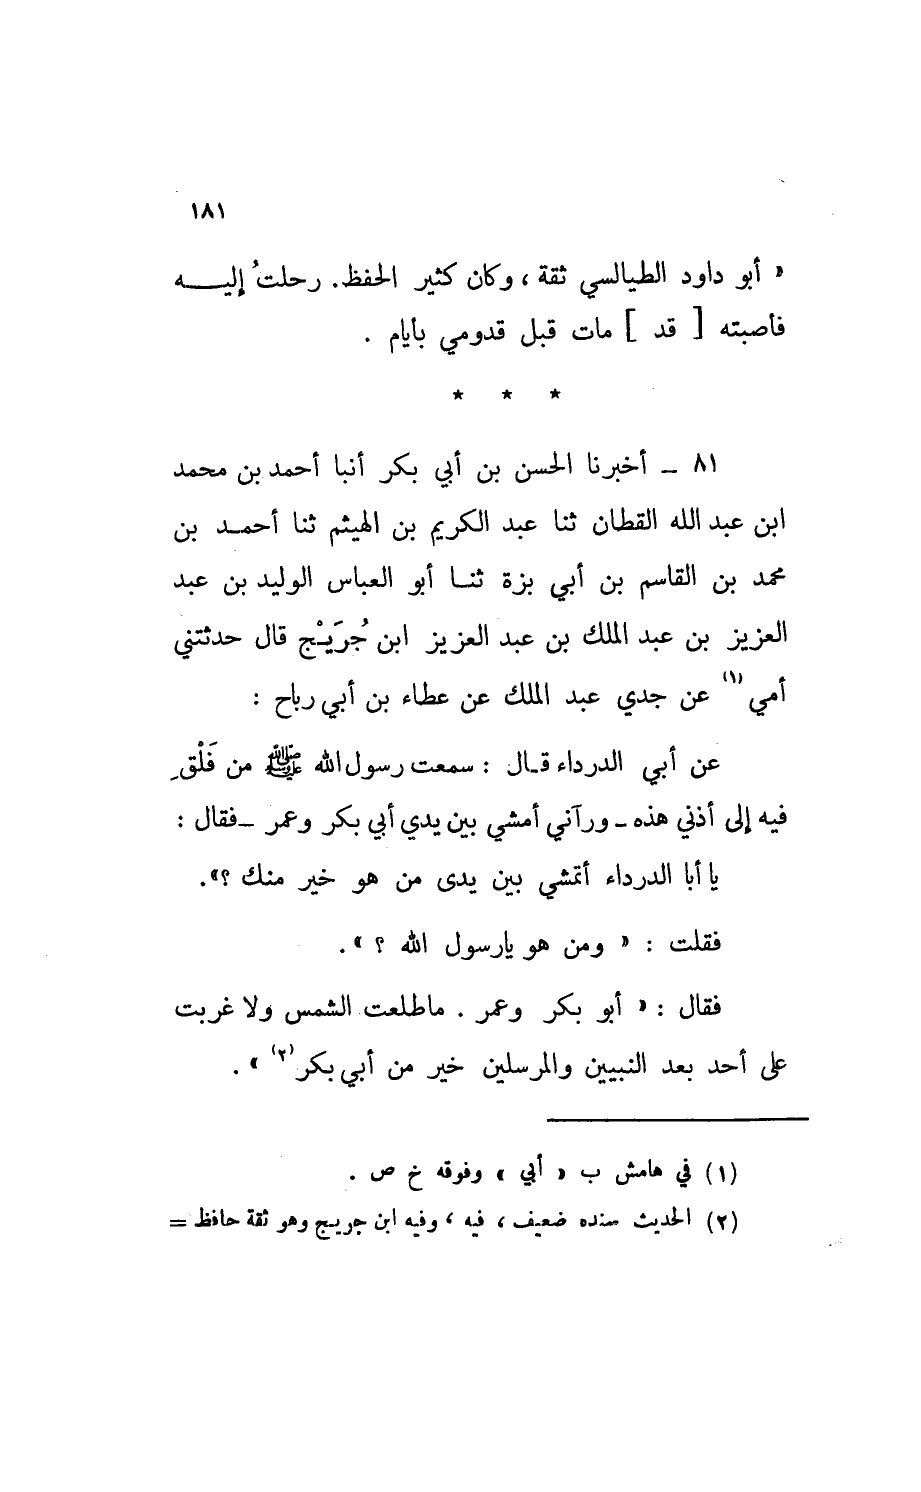 ١٨١
« أبو داود الطيالسي ثقة ، وكان كثير الحفظ. رحلتُ إليـــه
فأصبته [ قد ] مات قبل قدومي بأيام .
* * *
٨١ ـ أخبرنا الحسن بن أبي بكر أنبا أحمد بن محمد
ابن عبد الله القطان ثنا عبد الكريم بن الهيثم ثنا أحمـد بن
محمد بن القاسم بن أبي بزة ثنـا أبو العباس الوليد بن عبد
العزيز بن عبد الملك بن عبد العزيز ابن جُرَيْج قال حدثتني
أمي (١) عن جدي عبد الملك عن عطاء بن أبي رباح :
عن أبي الدرداء قـال : سمعت رسول الله ﷺ من فَلْقِ
فيه إلى أذني هذه ـ ورآني أمشي بين يدي أبي بكر وعمر ـ فقال :
يا أبا الدرداء أتمشي بين يدى من هو خير منك ؟».
فقلت : « ومن هو يارسول الله ؟ ».
فقال : « أبو بكر وعمر . ماطلعت الشمس ولا غربت
على أحد بعد النبيين والمرسلين خير من أبي بكر (٢) » .
(١) في هامش ب « أبي » وفوقه خ ص .
(٢) الحديث سنده ضعيف ، فيه ، وفيه ابن جريج وهو ثقة حافظ =